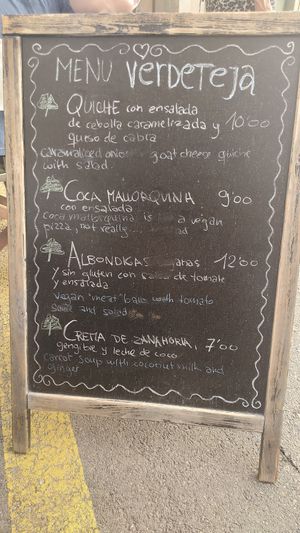 MENU VERDETEJA
QUICHE con ensalada 10'00
de cebolla caramelizada y
queso de cabra
caramelized goat cheese quiche
with salad
COCA MALLORQUINA 9'00
con ensalada
coca mallorquina is a vegan
pizza, not really...
ALBONDIGAS 12'00
y sin gluten con salsa de tomate
y ensalada
Vegan "meat" balls with tomato
sauce and salad
CREMA DE ZANAHORIA, 7'00
gengibre y leche de coco
carrot soup with coconut milk and
ginger